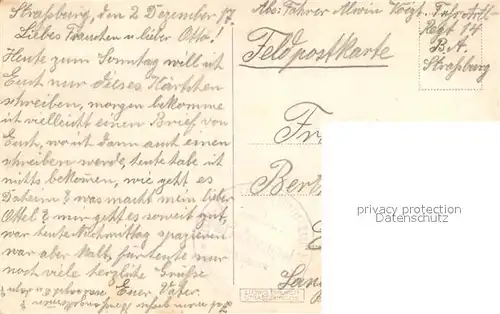 Straßburg, den 2 Dezember 17.
Liebes Frauchen u. lieber Otto!
Heute zum Sonntag will ich
Euch nur dieses Kärtchen
schreiben, morgen bekomme
ich vielleicht einen Brief von
Euch, wo ich dann auch einen
schreiben werde, heute habe ich
nichts bekommen, wie geht es
Daheim? was macht mein lieber
Ottel? mir geht es soweit gut,
war heute Nachmittag spazieren
war aber kalt, für heute nur
noch viele herzliche Grüße
Euer Vater
Abs: Fahrer Alwin Vogt. Fuhr Artl
Regt 14
B.A.
Straßburg
Feldpostkarte
Fr
Bert
privacy protection
Datenschutz